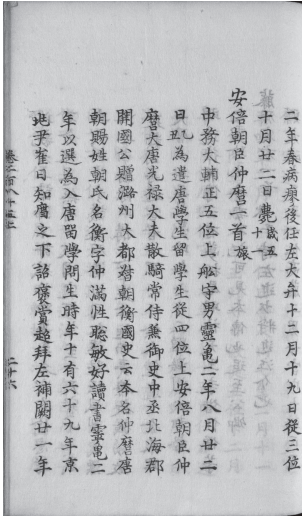 二年春病痩後任左大弁十二月十九日從三位
十月廿二日薨歳五十一
安倍朝臣仲麿一首 旅
中務大輔正五位上船守男靈亀二年八月廿二
日乙丑為遣唐學生留學生從四位上安倍朝臣仲
麿大唐光禄大夫散騎常侍兼御史中丞北海郡
開國公贈潞州大都督朝衡國史云本名仲麿唐
朝賜姓朝氏名衡字仲滿性聡敏好讀書靈亀二
年以選為入唐留學問生時年十有六十九年京
兆尹崔日知薦之下詔褒賞超拜左補闕廿一年
二十六